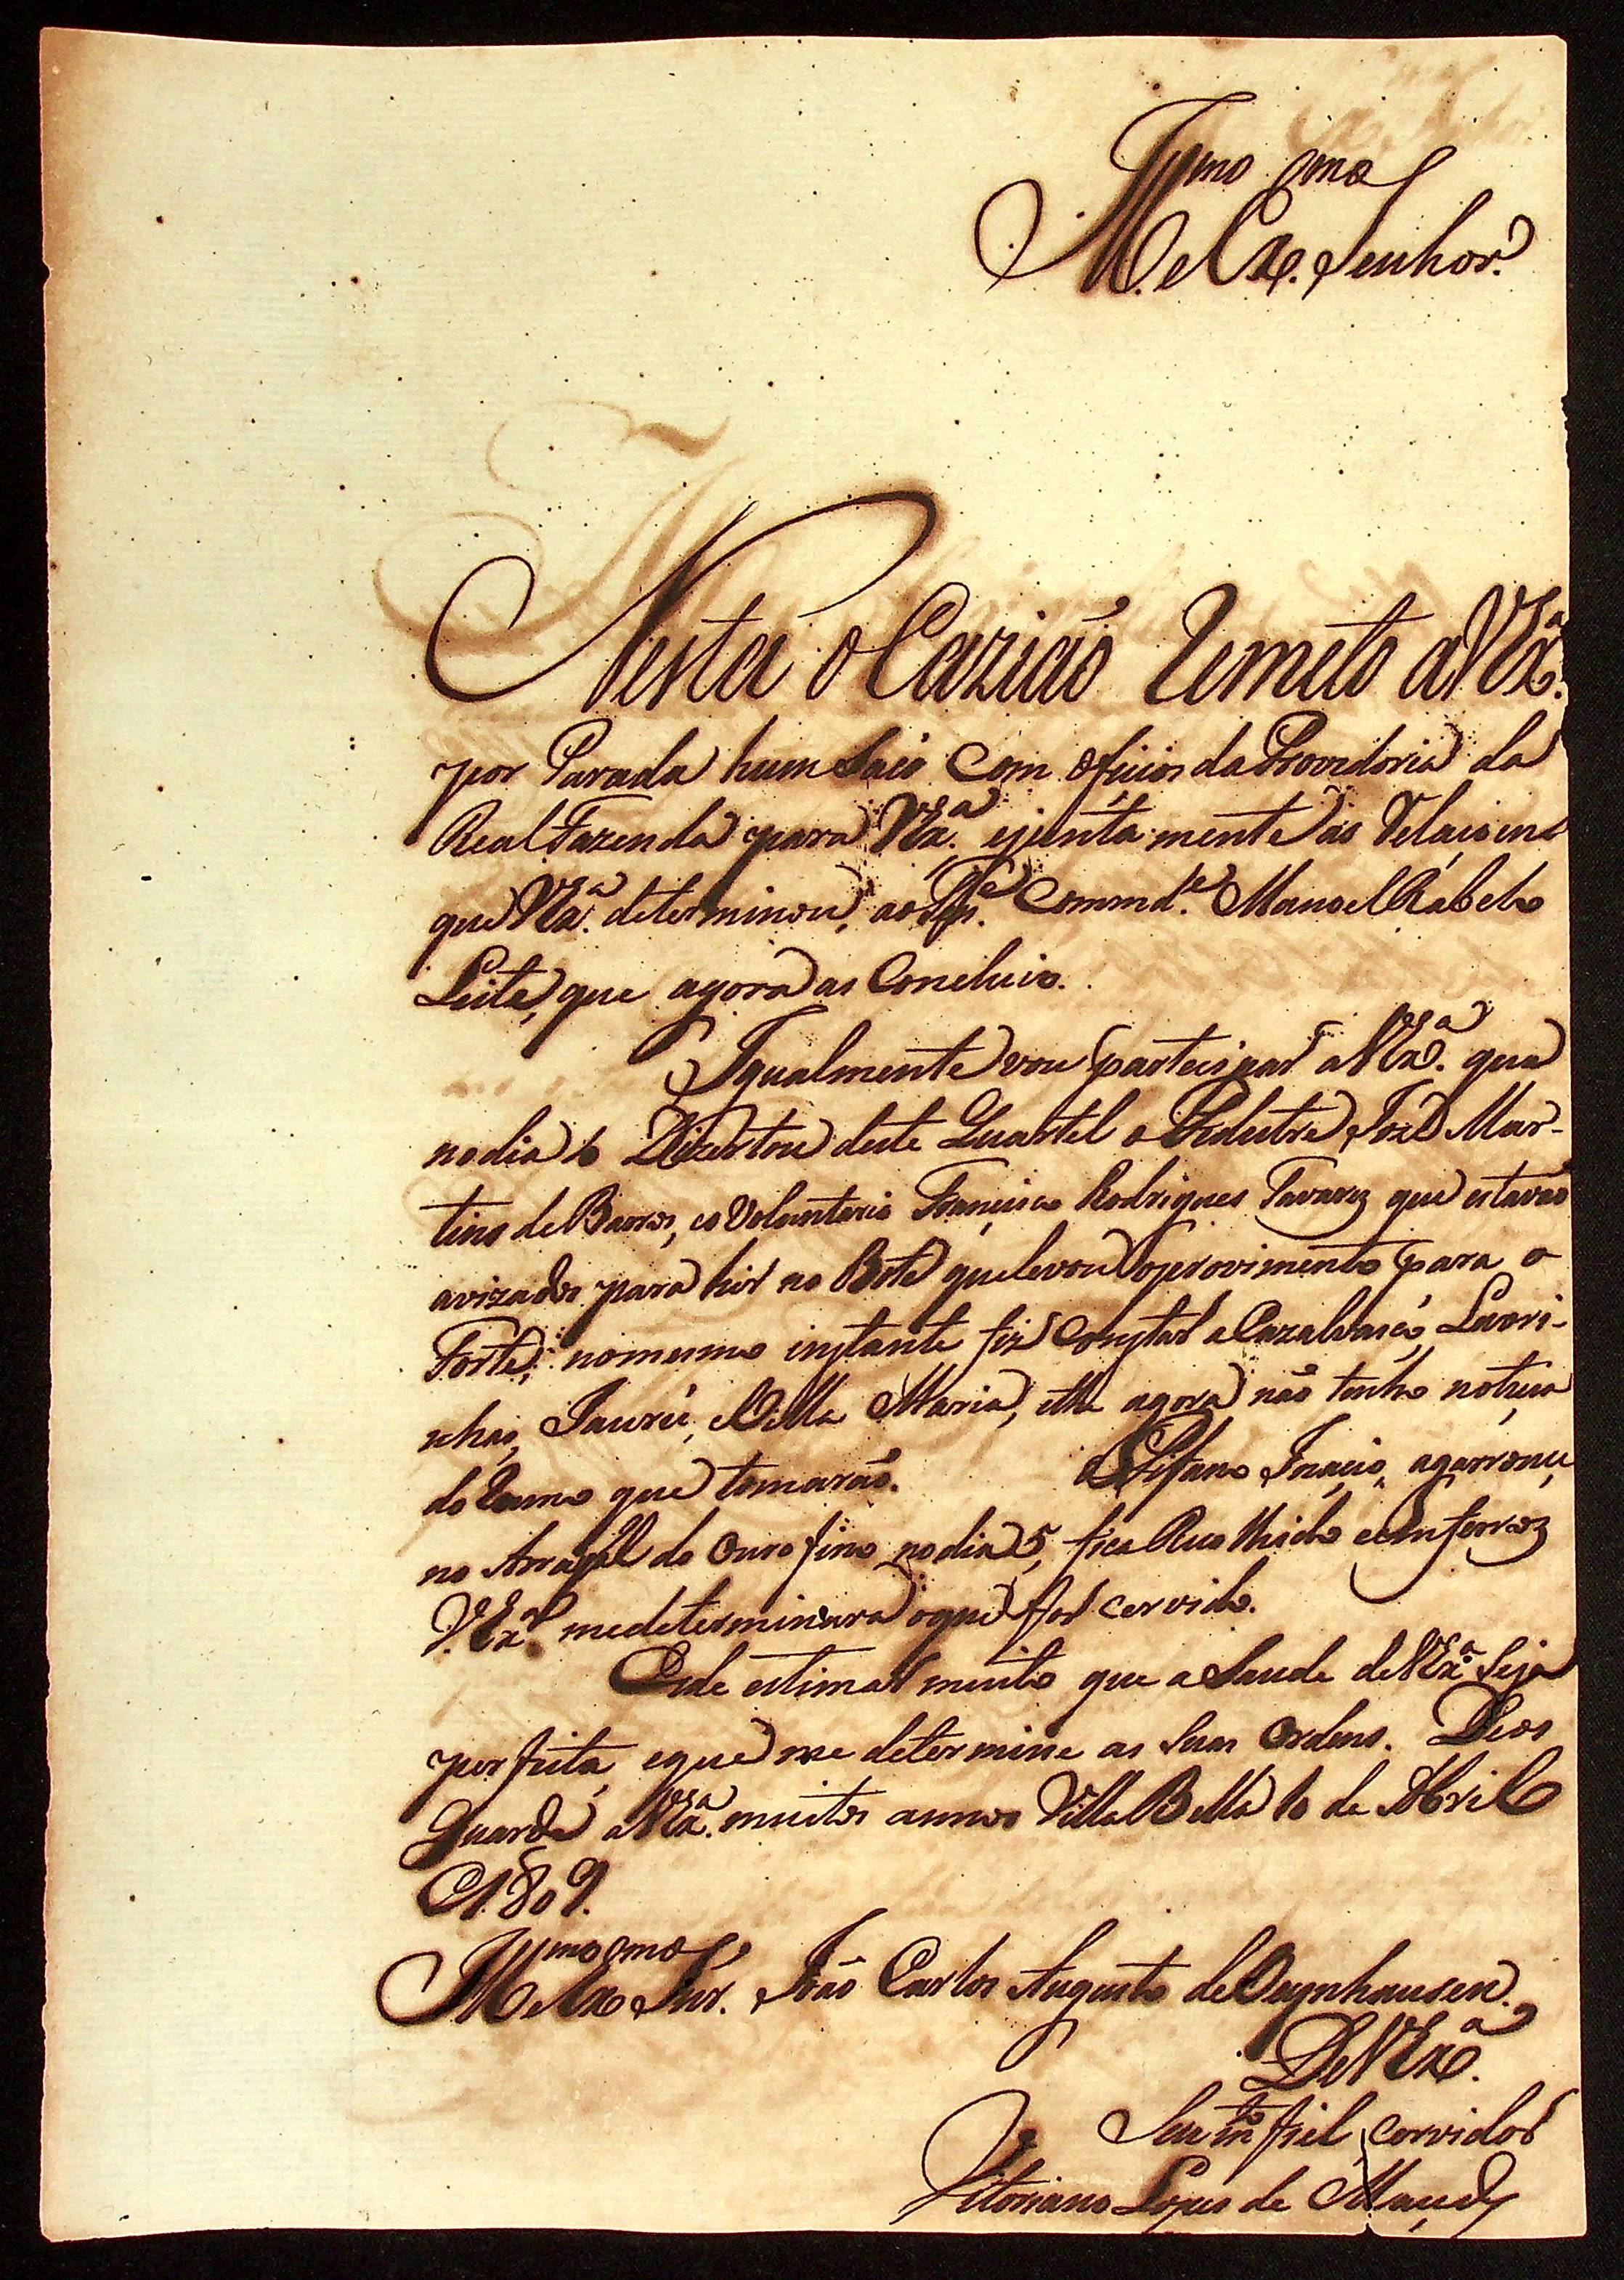 Ill.mo e Ex.mo Senhor.
Nesta o Caziaõ Remeto a V Ex.a
por Parada hum Saco Com Oficios da Provedoria da
Real Fazenda para V Ex.a ejunta mente as Relaçoens
que V Ex.a determinou, ao Commd.e Manoel Rabelo
Leite, que agora as Concluio.
Igualmente vou partecipar a V Ex.a que
no dia 6 Dizertou deste Quartel o Pedestre Jozé Mar-
tins de Barros, eo Volunterio Francisco Rodrigues Tavarez que estavaõ
avizados para hir no Bote que levou o provimento para o
Forte; no mesmo instante fiz Constar a Cazalvasco, Lavri-
nhas, Jaurú, e Villa Maria, ethe agora naõ tenho noticia
do Rumo que tomaraõ. Estefano Inacio, agarrouçe
no Arrayal do Ouro fino no dia 5, fica Recolhido e em ferros
V. Ex.a me determinara o que for cervido.
Ede estimar muito que a Saude de V Ex.a Seja
perfeita, e que me determine as Suas Ordens. Deos
Guarde a V Ex.a muitos annos Villa Bella 10 de Abril
de 1809.
Ill.mo e Ex.mo Snr. Joaõ Carlos Augusto de Oeynhausen.
De V Ex.a
Seu m.to fiel cervidor
Vitoriano Lopes de Maçedo